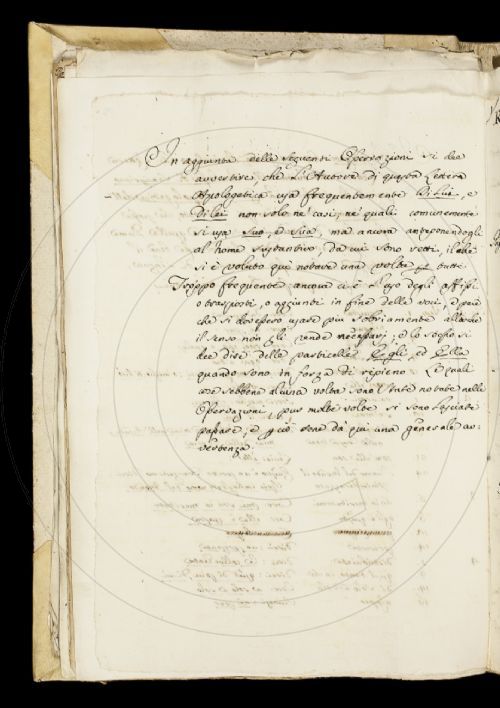 In aggiunta delle seguenti Osservazioni si dee
avvertire, che l'Autore di questa Lettera
Apologetica usa frequentemente Di Lui, e
Di lei non solo ne' casi, ne' quali comunemente
si usa Suo, e Sua, ma ancora anteponendogli
al nome sustantivo, da cui sono retti, il che
si è voluto quì notare una volta p tutte.
Troppo frequente ancora ci è l'uso degli affissi
o trasposti, o aggiunti in fine delle voci, e pare
che si dovessero usare più sobriamente allorche
il senso non gli rende necessarj; e lo stesso si
dee dire delle particelle Egli, ed Ella
quando sono in forza di ripieno. Le quali
cose sebbene alcuna volta sono state notate nelle
Osservazioni, pur molte volte si sono lasciate
passare, e p ciò sene dà quì una generale av-
vertenza.